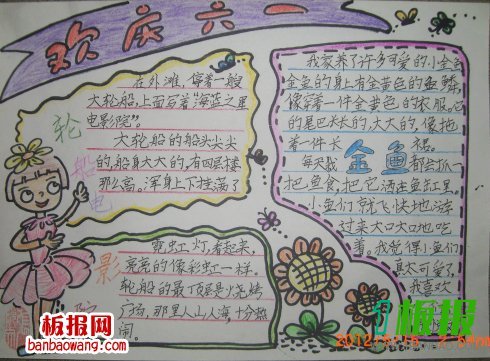 欢庆六一
轮船电影院
在外滩,停着一艘
大轮船,上面写着"海蓝之星
电影院"。
大轮船的船头尖尖
的,船身大大的,有四层楼
那么高,浑身上下挂满了
霓虹灯,看起来,
亮亮的像彩虹一样。
轮船的最顶层是火烧烤
广场,那里人山人海,十分热
闹。
金鱼
我家养了许多可爱的小金鱼
金鱼的身上有金黄色的鱼鳞,
像穿着一件金黄色的衣服,它
的尾巴长长的,大大的,像拖
着一件长裙。
每天我都会抓一
把鱼食,把它洒在鱼缸里。
小鱼们就飞快地游
过来大口大口地吃
着。我觉得小鱼们
真太可爱了
我喜欢
板报网
banbaowang.com
板报
2012